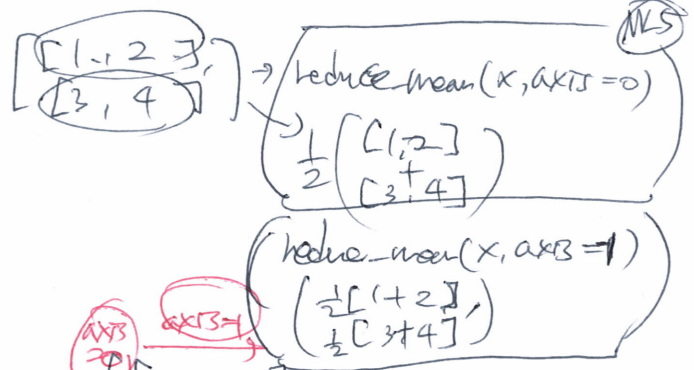 [[1., 2],
[3, 4]]
reduce_mean(x, axis=0)
1/2 ([1,2]
+
[3,4])
reduce_mean(x, axis=1)
(1/2[1+2],
1/2[3+4])
axis=1
axis